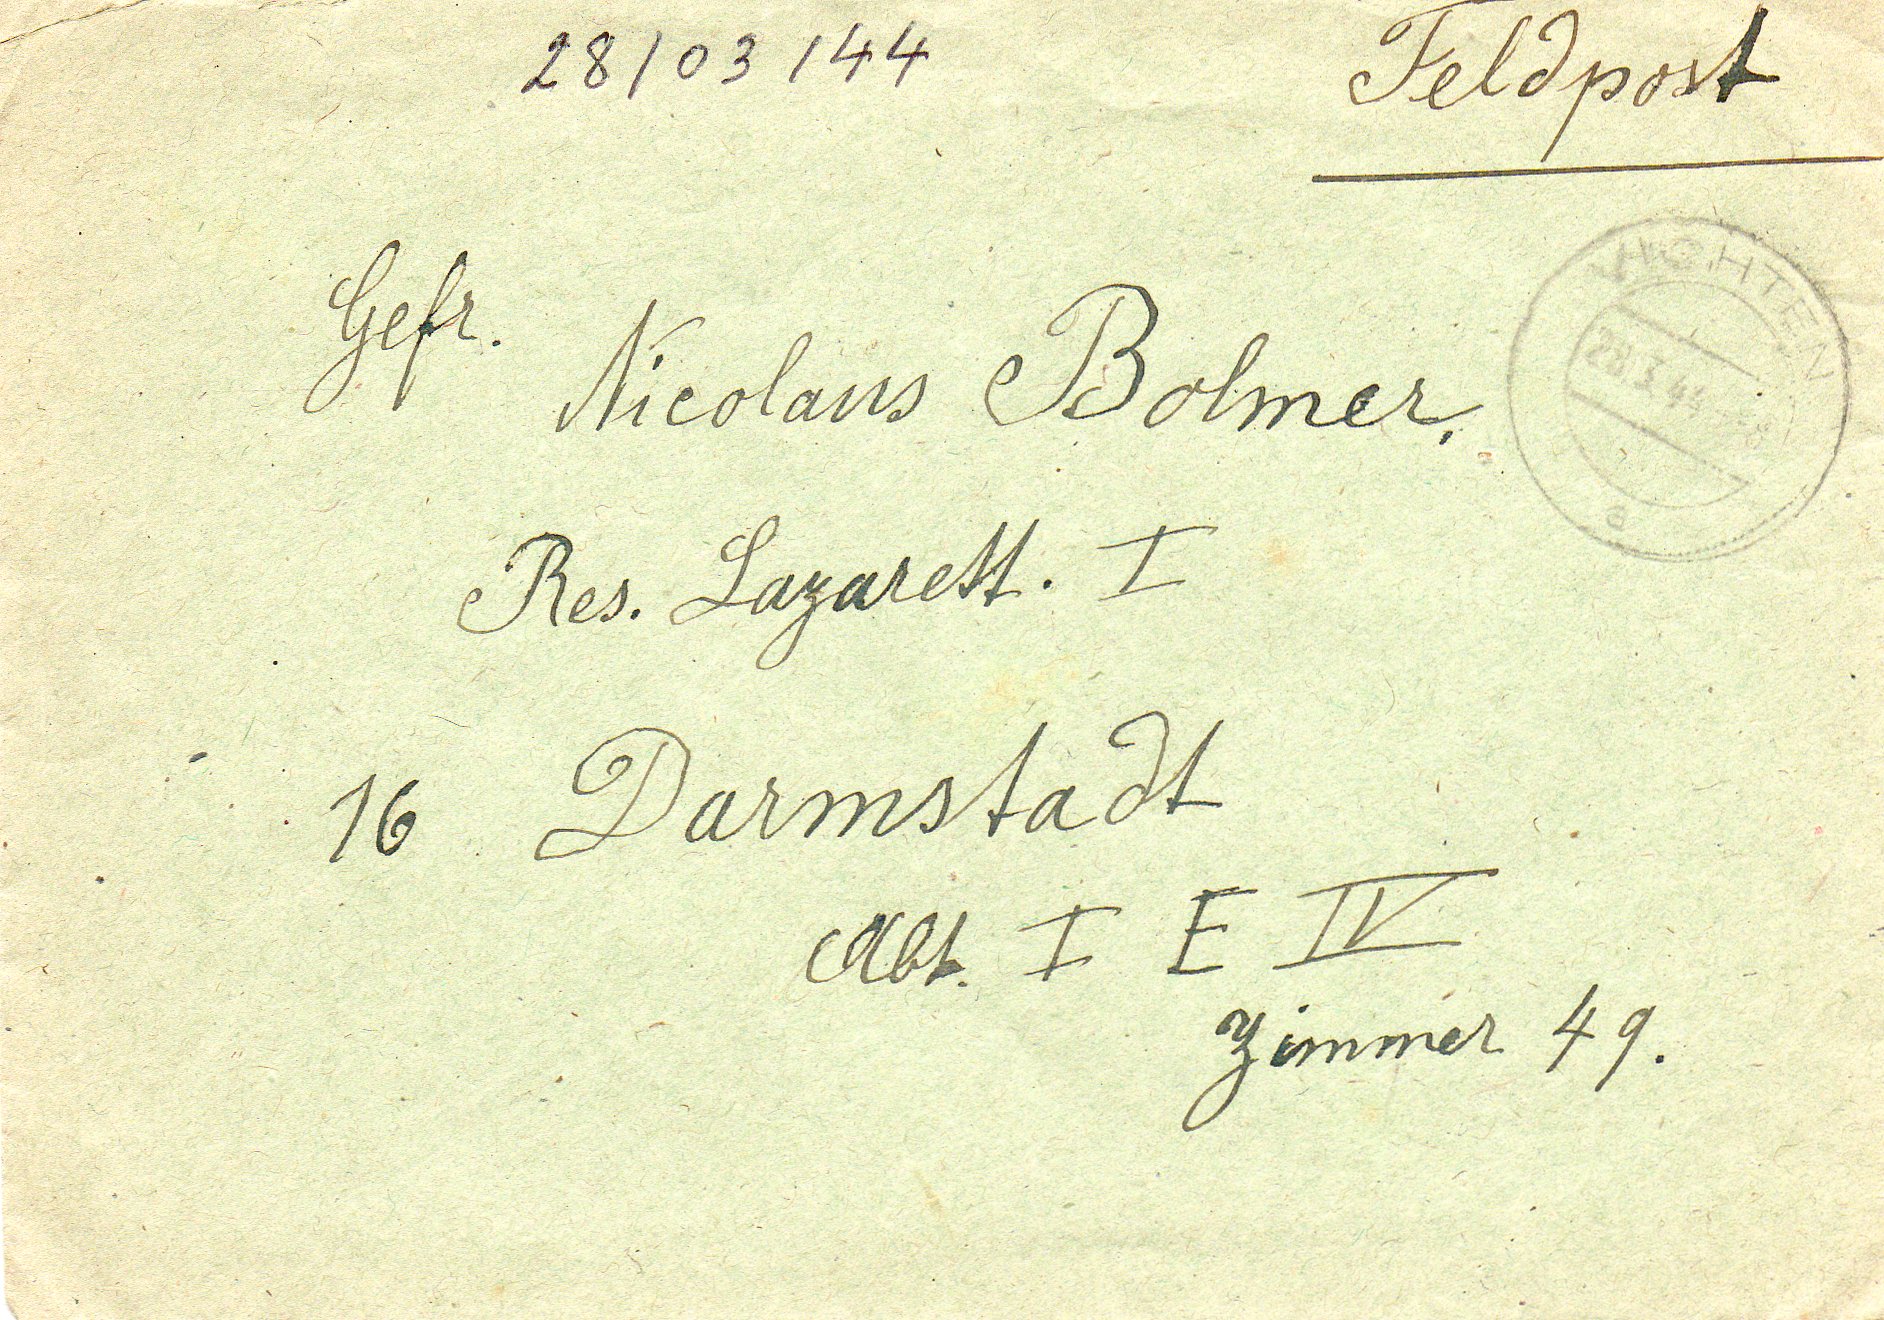 28/03/44
Feldpost
Gefr.
Nicolaus Bolmer.
28.3.44
a
Res. Lazarett. I
16 Darmstadt
Abt. I E IV
Zimmer 49.